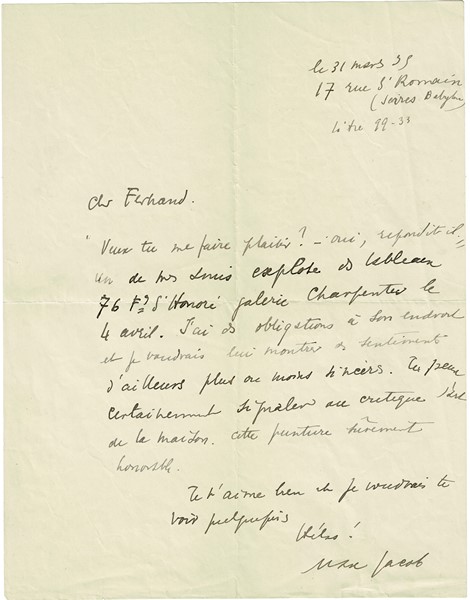 le 31 mars 35
17 rue St Romain
(Sèvres Babylone)
Littré 99-33
Cher Fernand.
Veux tu me faire plaisir? – oui, répondit-il.
un de mes amis expose des tableaux
76 Fg St Honoré galerie Charpentier le
4 avril. J'ai des obligations à son endroit
et je voudrais lui montrer des sentiments
d'ailleurs plus ou moins sincères. Tu peux
certainement signaler au critique d'art
de la maison cette peinture sûrement
honorable.
Je t'aime bien et je voudrais te
voir quelquefois
Hélas!
Max Jacob